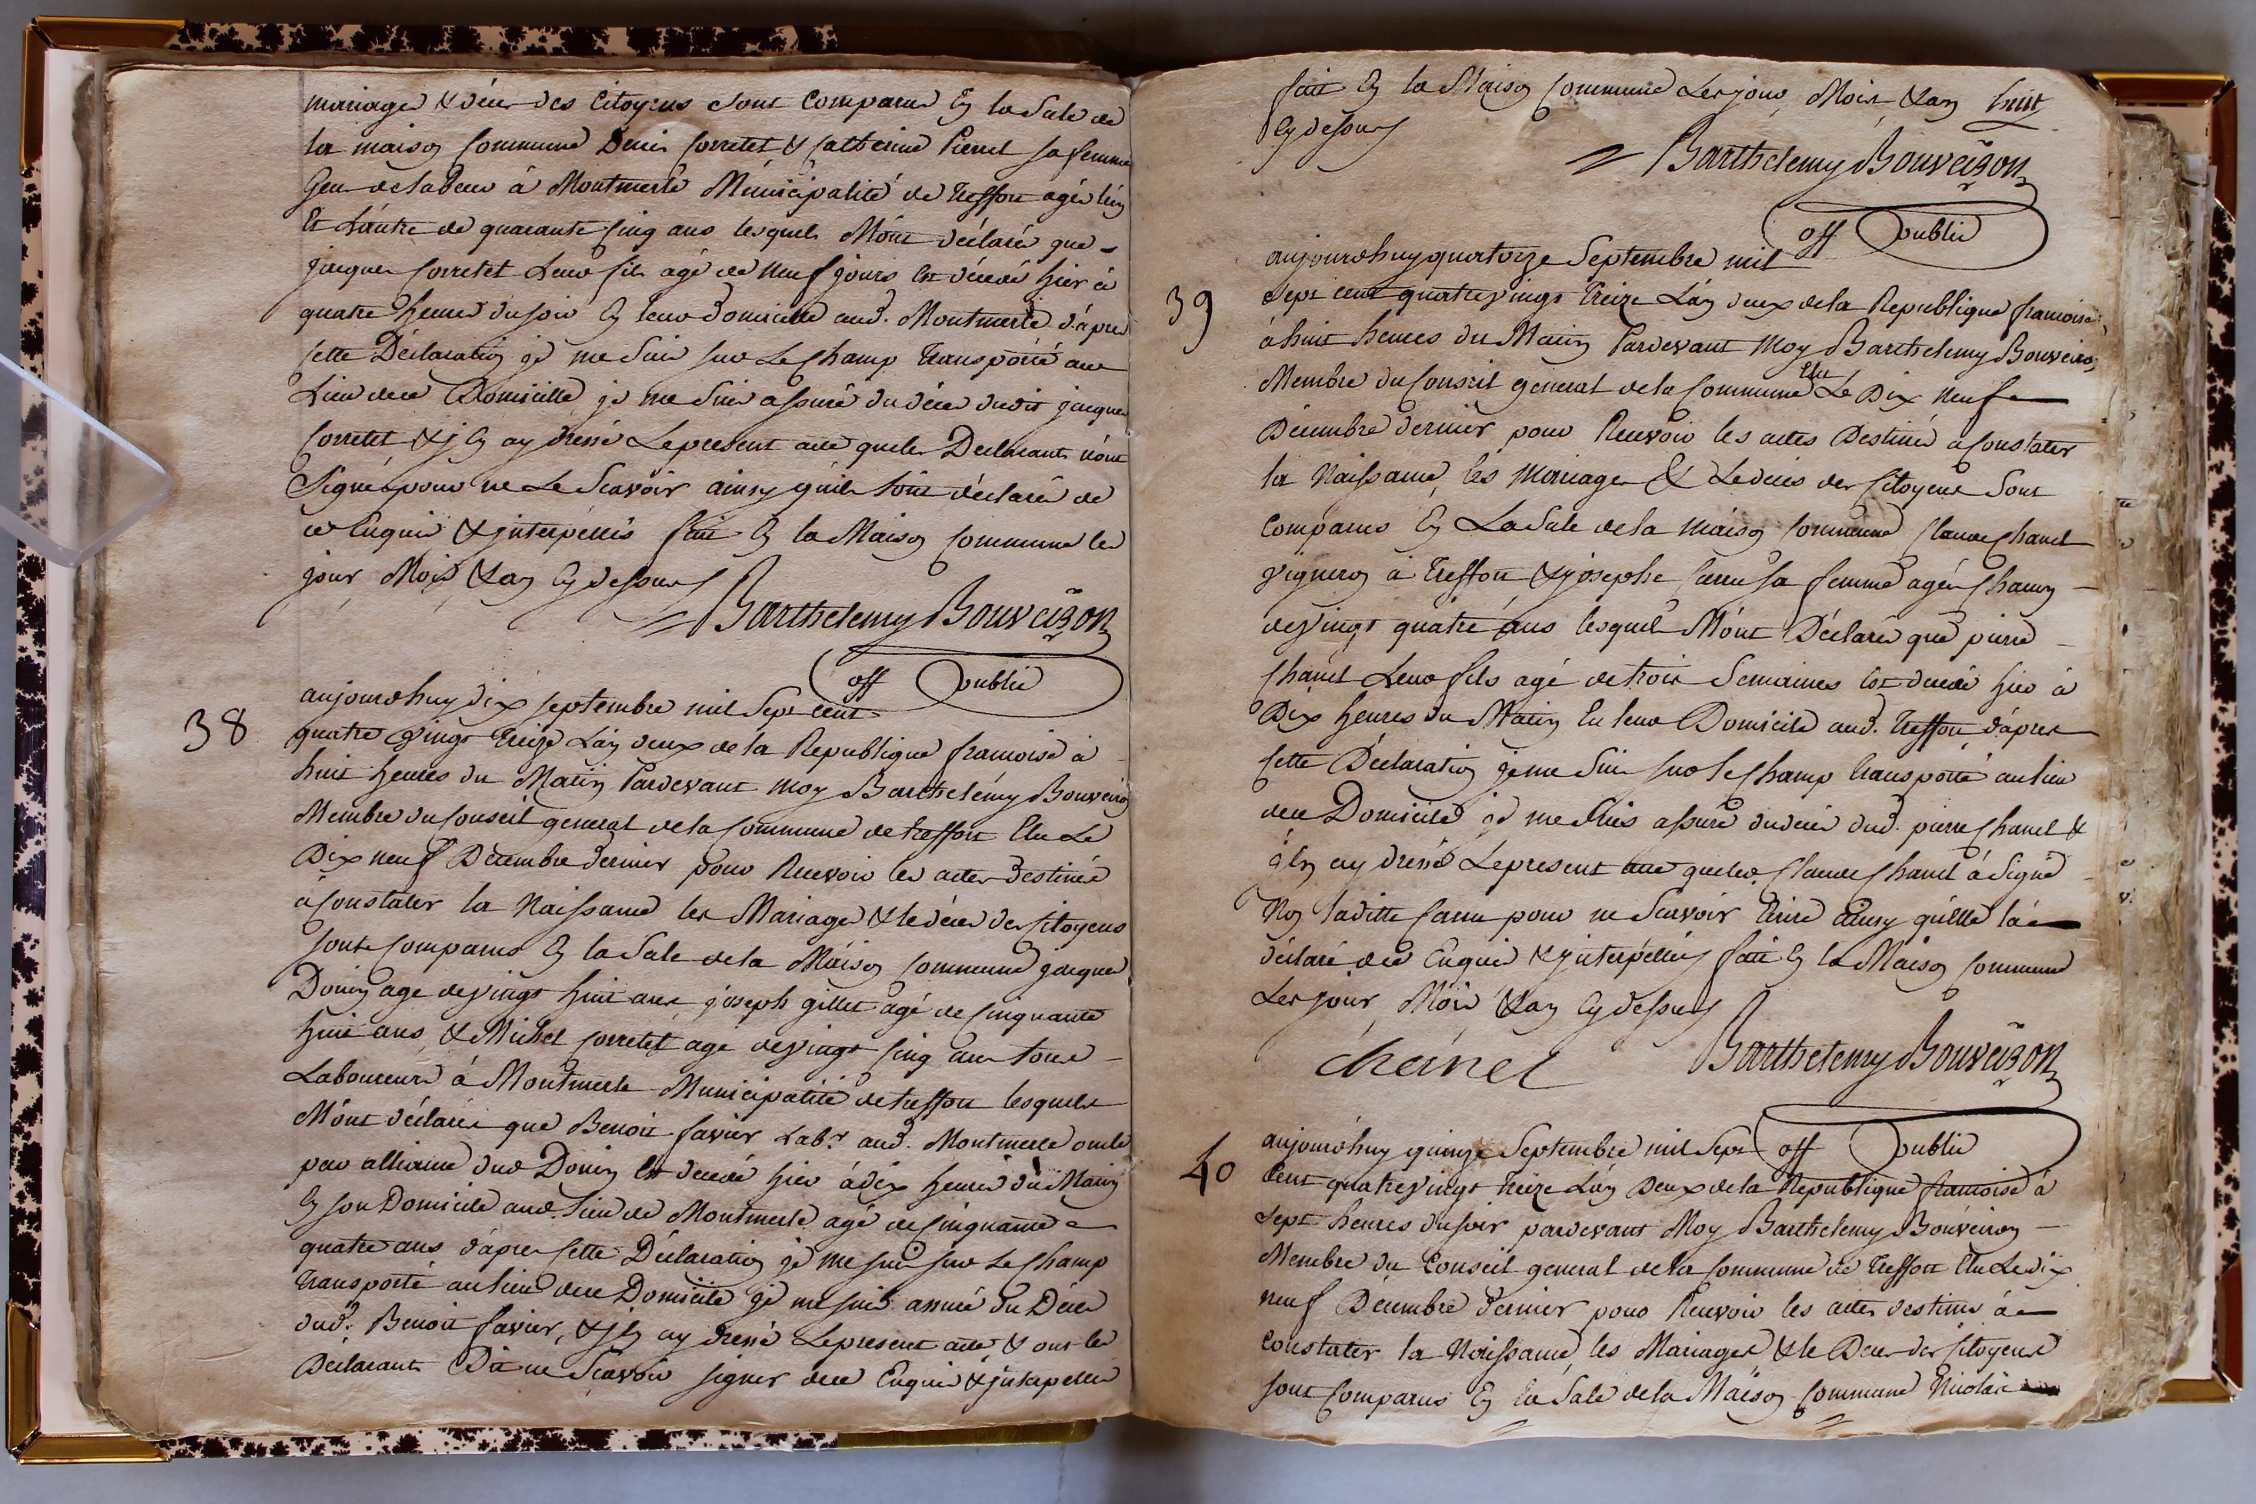 mariage & décès des Citoyens sont Comparus En la Sale de
la maison Commune Denis Corretet & Catherine Pierrel sa femme
Gens de labeur à Montmerle Municipalité de Treffort agés l'un
Et L'autre de quarante Cinq ans lesquels M'ont déclarés que
jacques Corretet Leur fils agé de Neuf jours Est décédé hier à
quatre heures du soir En leur domicille aud. Montmerle d'apres
Cette Déclaration je me Suis sur Le Champ Transporté au
Lieu de ce Domicille je me Suis assuré du décès dudit jacques
Corretet & j'En ay dressé Le present acte que les Declarants n'ont
Signé pour ne Le Scavoir ainsy qu'ils l'ont déclaré de
ce Enquis & jnterpellés fait En la Maison Commune les
jour Mois & an Cy dessus
Barthelemy Bouveiron
off public
38
aujourdhuy dix septembre mil Sept cent
quatre Vingt Treize L'an deux de la Republique francoise à
huit heures du Matin Pardevant moy Barthelemy Bouveiron
Membre du Conseil general de la Commune de treffort Elu Le
Dix neuf Décembre dernier pour Recevoir les actes destinés
à Constater la Naissance les Mariage & le décès des Citoyens
sont Comparus En la Sale de la Maison Commune jacques
Donin age de Vingt huit ans joseph gillet agé de Cinquante
huit ans & Michel Corretet age de Vingt Cinq ans tous
Laboureurs à Montmerle Municipalité de treffort lesquels
M'ont déclarés que Benoit favier Labr aud. Montmerle oncle
par alliance dud Donin Est décedé hier à dix heures du Matin
En son Domicile aud. Lieu de Montmerle agé de Cinquante
quatre ans d'apres Cette Déclaration je me suis sur Le Champ
Transporté au lieu de ce Domicile je me suis assuré du Décès
dud. Benoit favier, & j'En ay dressé Le present acte & ont les
Declarants Dit ne Scavoir signer de ce Enquis & jnterpellés
fait En la Maison Commune Les jour Mois & an
Cy dessus
Barthelemy Bouveiron
off public
39
aujourdhuy quatorze Septembre mil
Sept cent quatre Vingt Treize L'an deux de la Republique francoise
à huit heures du Matin Pardevant moy Barthelemy Bouveiron
Elu
Membre du Conseil general de la Commune Le Dix neuf
Décembre dernier pour Recevoir les actes Destinés a Constater
la Naissance, les Mariages & Le décès des Citoyens Sont
Comparus En La Sale de la Maison Commune Claude Chanel
Vigneron à Treffort & josephe sa femme agés Chacun
de Vingt quatre ans lesquels M'ont Déclarés que pierre
Chanel Leur fils agé de trois Semaines Est décedé hier à
Dix heures du Matin En leur Domicile aud. Treffort d'apres
Cette Déclaration je me Suis sur le Champ transporté au lieu
de ce Domicile je me Suis assuré du décès dud. pierre Chanel &
j'En ay dressé Le present acte que led. Claude Chanel à Signé
Non laditte pour ne Scavoir Ecrire ainsy qu'elle l'a
déclaré de ce Enquis & jnterpéllés fait En la Maison Commune
Les jour Mois & an Cy dessus
chanel Barthelemy Bouveiron
off public
40
aujourdhuy quinze Septembre mil Sept
Cent quatre Vingt treize L'an Deux de la Republique francoise à
Sept heures du soir pardevant Moy Barthelemy Bouveiron
Membre du Conseil general de la Commune de Treffort Elu Le dix
neuf Décembre dernier pour Recevoir les actes destinés à
Constater la Naissance, les Mariages & le Décès des Citoyens
sont Comparus En la Sale de la Maison Commune Nicolas